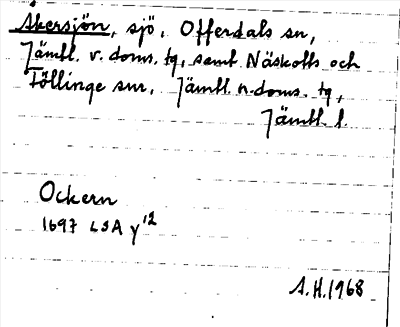 Åkersjön, sjö, Offerdals sn,
Jämtl. v. doms. tg, samt Näskotts och
Föllinge snr, Jämtl. n. doms. tg,
Jämtl. l.
Ockern
1697 LSA y 12
A.H. 1968